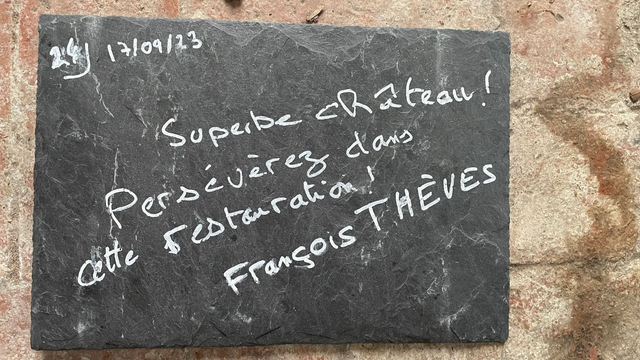 24J 17/09/23
Superbe château!
Persévèrez dans
cette restauration!
François THÈVES